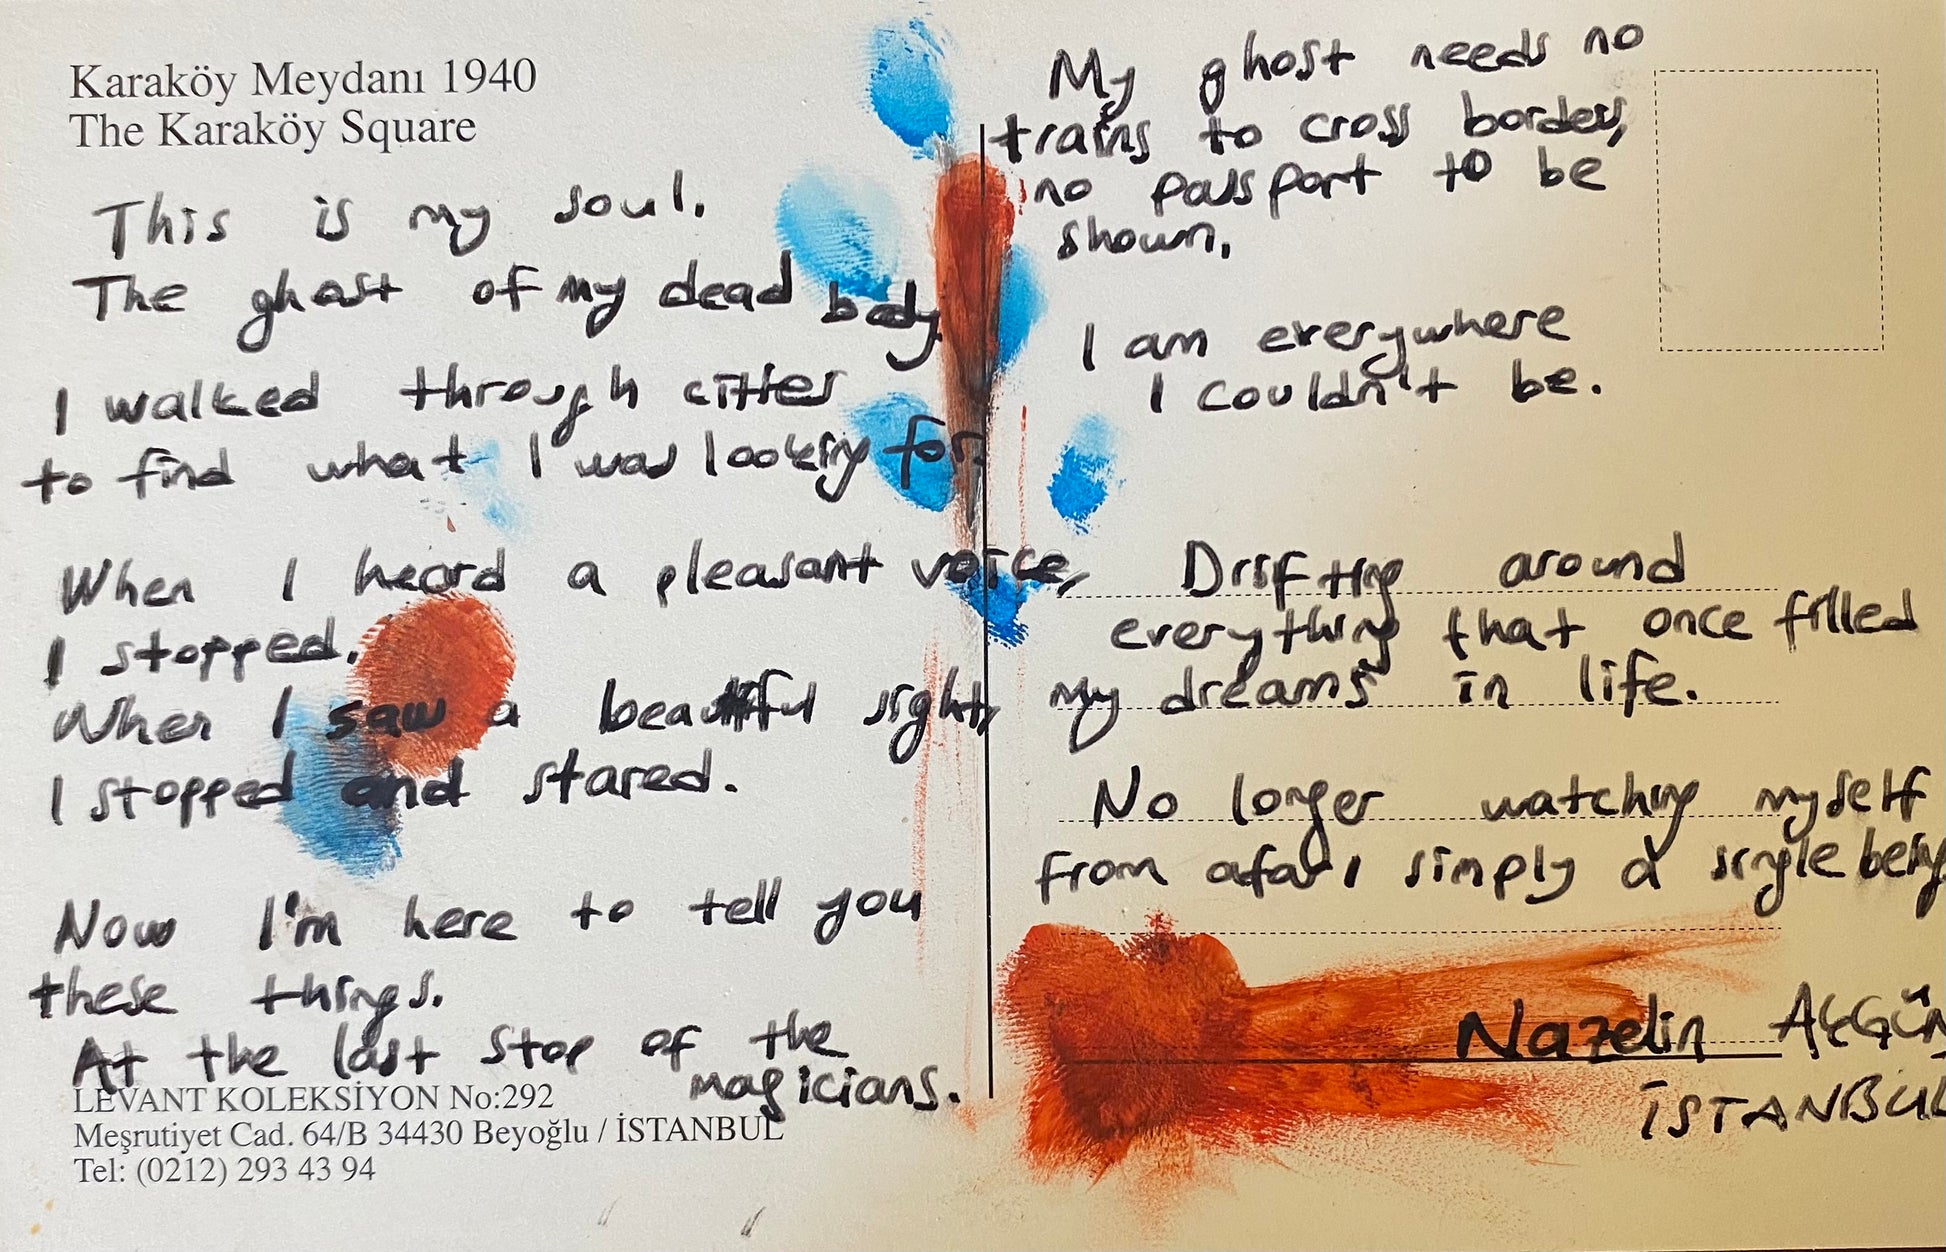 Karaköy Meydanı 1940
The Karaköy Square
This is my soul.
The ghost of my dead body.
I walked through cities
to find what I was looking for.
When I heard a pleasant voice,
I stopped.
When I saw a beautiful sight,
I stopped and stared.
Now I'm here to tell you
these things.
At the last stop of the
magicians.
LEVANT KOLEKSİYON No:292
Meşrutiyet Cad. 64/B 34430 Beyoğlu / İSTANBUL
Tel: (0212) 293 43 94
My ghost needs no
trains to cross borders,
no passport to be
shown.
I am everywhere
I couldn't be.
Drifting around
everything that once filled
my dreams in life.
No longer watching myself
from afar, simply a single being
Nazelin
İSTANBUL